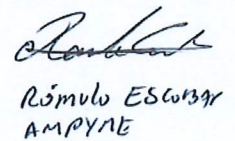 Rómulo Escobar
AMPYME